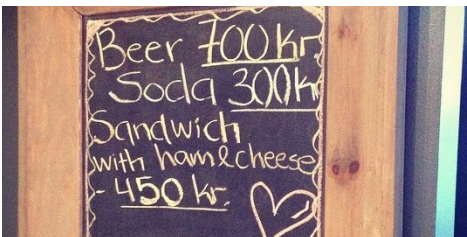 Beer 700 kr
Soda 300 k
Sandwich
with ham & cheese
- 450 kr.